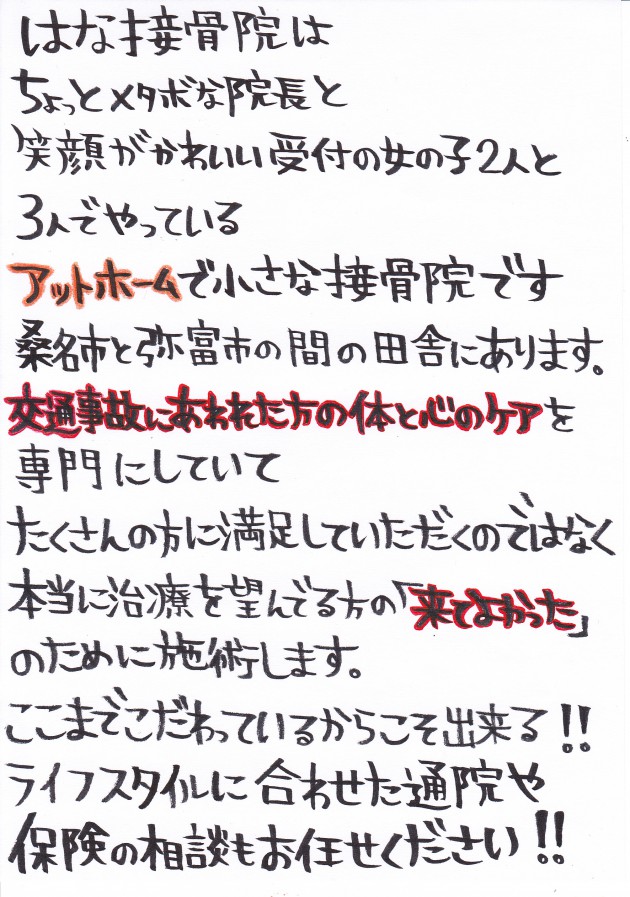 はな接骨院は
ちょっとメタボな院長と
笑顔がかわいい受付の女の子2人と
3人でやっている
アットホームで小さな接骨院です
桑名市と弥富市の間の田舎にあります。
交通事故にあわれた方の体と心のケアを
専門にしていて
たくさんの方に満足していただくのではなく
本当に治療を望んでる方の「来てよかった」
のために施術します。
ここまでこだわっているからこそ出来る!!
ライフスタイルに合わせた通院や
保険の相談もお任せください!!